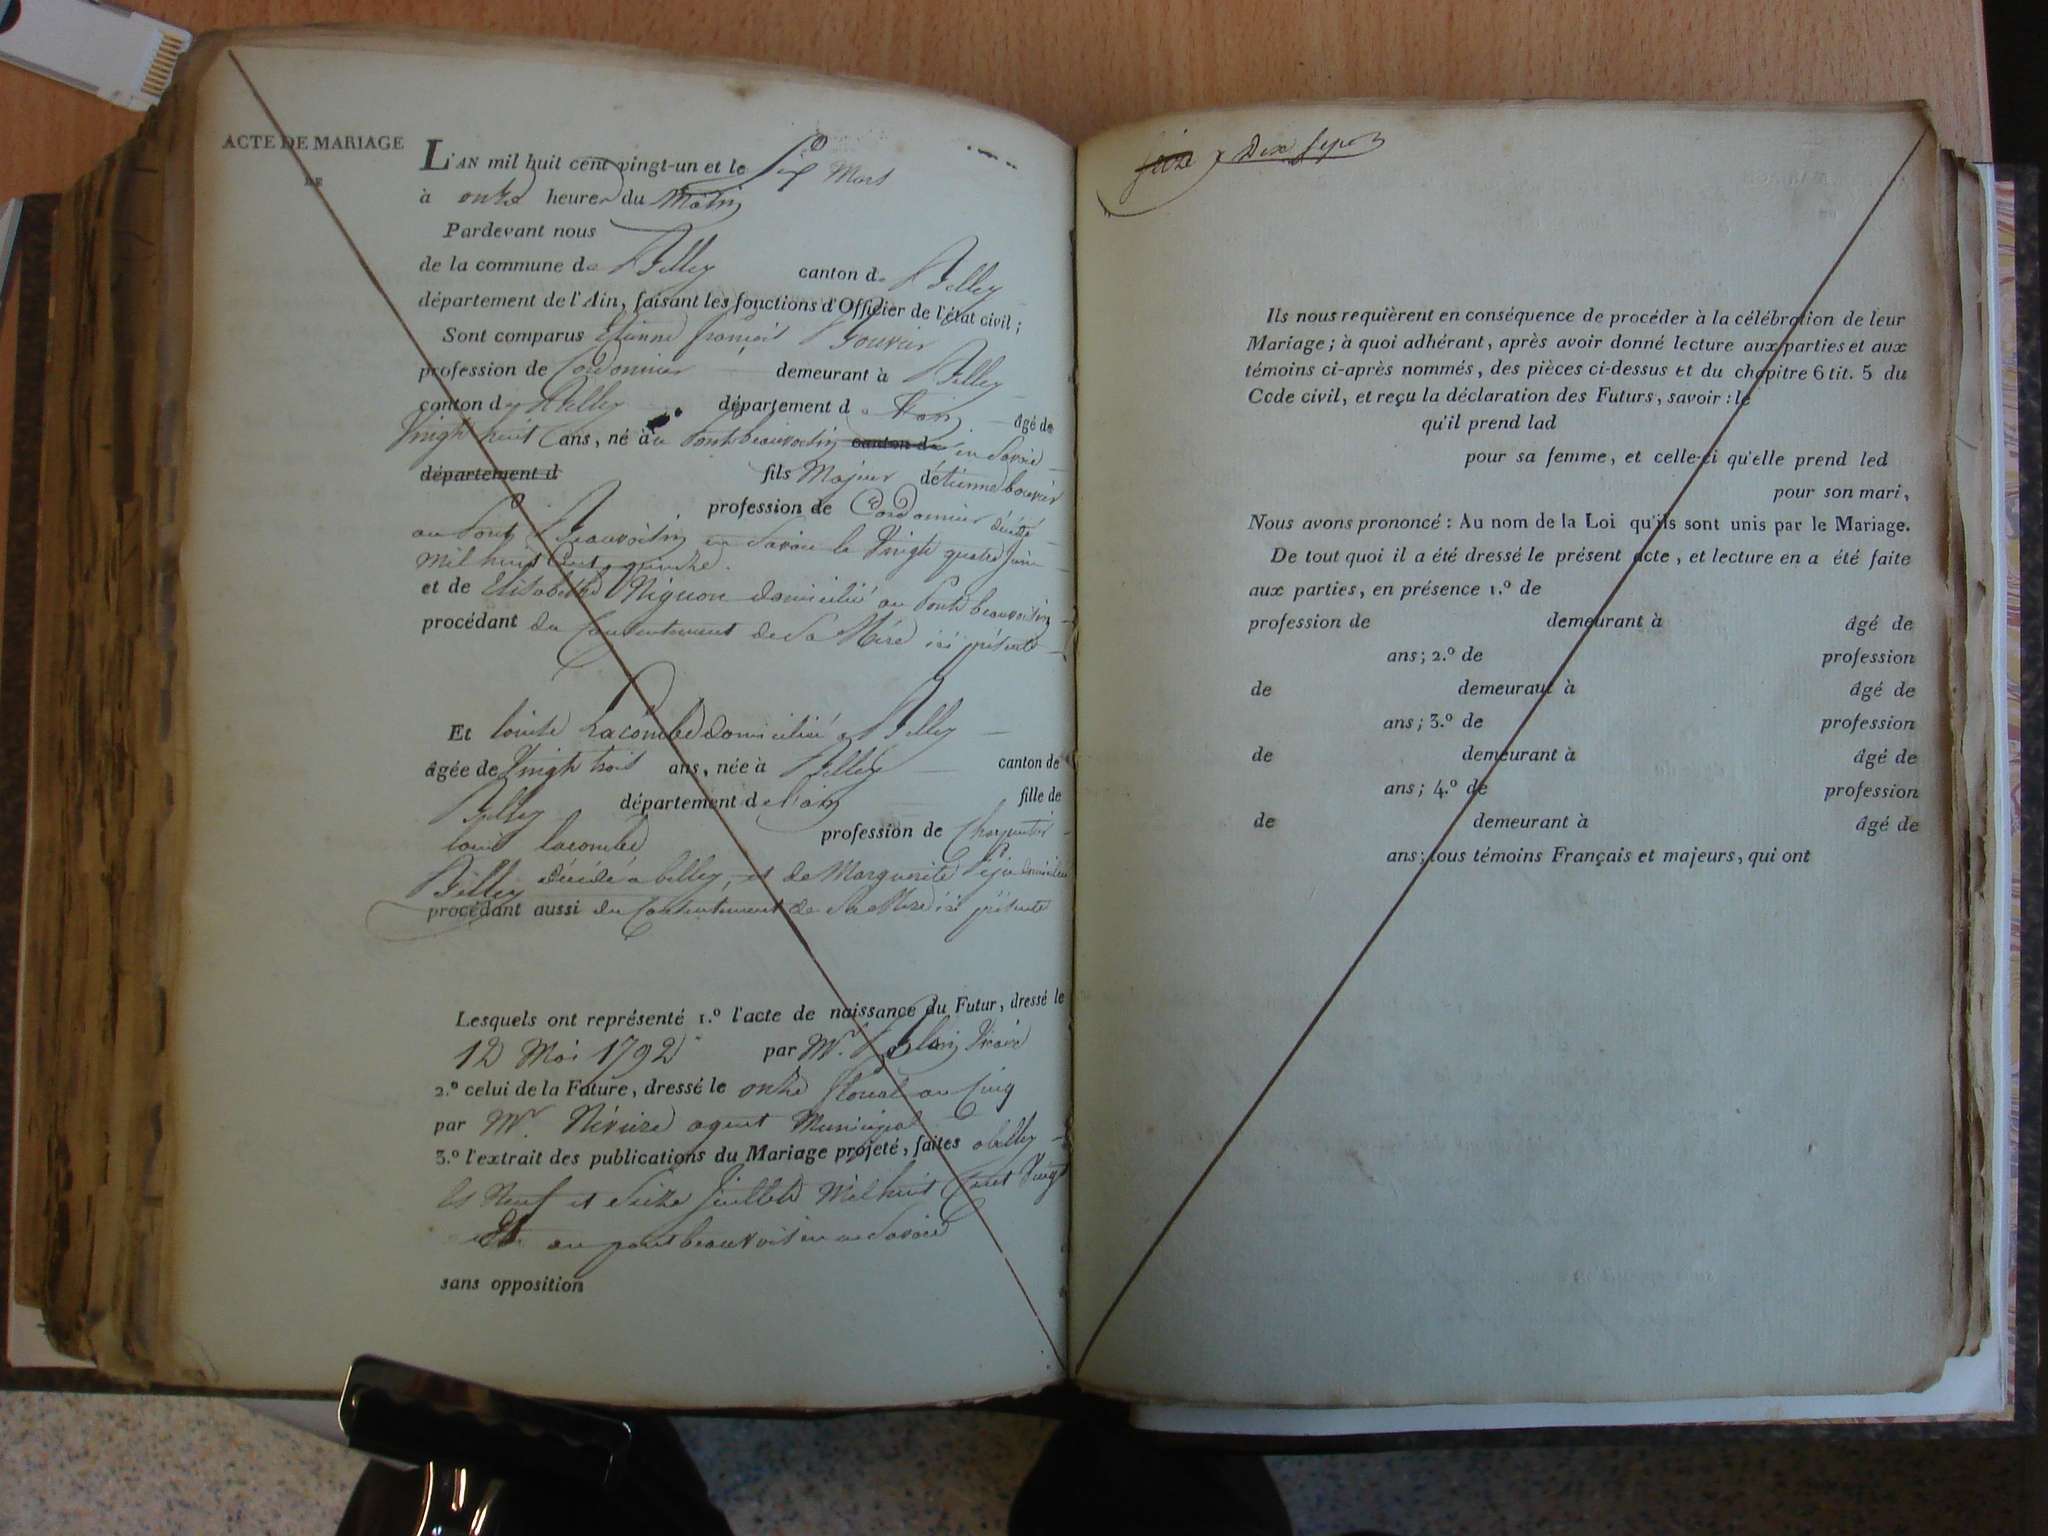 ACTE DE MARIAGE
DE
L'AN mil huit cent vingt-un et le six Mars
à onze heures du Matin
Pardevant nous
de la commune de Belley canton de Belley
département de l'Ain, faisant les fonctions d'Officier de l'état civil ;
Sont comparus Etienne françois Bouvier
profession de Cordonnier demeurant à Belley
canton de Belley département de l'ain âgé de
Vingt huit ans, né à au Pontbeauvoisin canton de en Savoie
département d fils Majeur d'étienne bouvier
profession de Cordonnier décédé
au Pont Beauvoisin en Savoie le Vingt quatre juin
mil huit Cent quinze.
et de Elisabethe Mignon domiciliée au Pont beauvoisin
procédant du Consentement de Sa Mère ici présente
Et louise Lacombe domiciliée à Belley
âgée de Vingt trois ans, née à Belley canton de
Belley département de l'ain fille de
louis lacombe profession de Charpentier
Belley décédé à belley, et de Marguerite domiciliée
procédant aussi du Consentement de Sa Mère ici présente
Lesquels ont représenté 1.º l'acte de naissance du Futur, dressé le
12 Mai 1792 par Mr.
2.º celui de la Future, dressé le onze floréal an Cinq
par Mr. agent Municipal
3.º l'extrait des publications du Mariage projeté, faites à belley
les Neuf et Seize Juillet Mil huit Cent Vingt
Et au pont beauvoisin en Savoie
sans opposition
seize Dix sept
Ils nous requièrent en conséquence de procéder à la célébration de leur
Mariage ; à quoi adhérant, après avoir donné lecture aux parties et aux
témoins ci-après nommés, des pièces ci-dessus et du chapitre 6 tit. 5 du
Code civil, et reçu la déclaration des Futurs, savoir : le
qu'il prend lad
pour sa femme, et celle-ci qu'elle prend led
pour son mari,
Nous avons prononcé : Au nom de la Loi qu'ils sont unis par le Mariage.
De tout quoi il a été dressé le présent acte, et lecture en a été faite
aux parties, en présence 1.º de
profession de demeurant à âgé de
ans ; 2.º de profession
de demeurant à âgé de
ans ; 3.º de profession
de demeurant à âgé de
ans ; 4.º de profession
de demeurant à âgé de
ans ; tous témoins Français et majeurs, qui ont